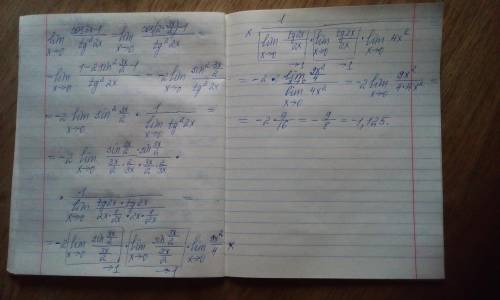 lim x→0 (cos3x-1)/(tg²2x) = lim x→0 (cos(2·3x/2)-1)/(tg²2x) =
= lim x→0 (1-2sin²(3x/2)-1)/(tg²2x) = -2 lim x→0 (sin²(3x/2))/(tg²2x) =
= -2 lim x→0 sin²(3x/2) · 1/(lim x→0 tg²2x) =
= -2 lim x→0 (sin(3x/2)·sin(3x/2))/(3x/2·2/3x·3x/2·2/3x) ·
· 1/(lim x→0 (tg2x·tg2x)/(2x·1/2x·2x·1/2x)) =
= -2 lim x→0 (sin(3x/2))/(3x/2) →1 · lim x→0 (sin(3x/2))/(3x/2) →1 · lim x→0 9x²/4 ×
× 1/(lim x→0 (tg2x)/(2x) →1 · lim x→0 (tg2x)/(2x) →1 · lim x→0 4x²) =
= -2 · (lim x→0 9x²/4)/(lim x→0 4x²) = -2 lim x→0 9x²/(4·4x²) =
= -2 · 9/16 = -9/8 = -1,125.